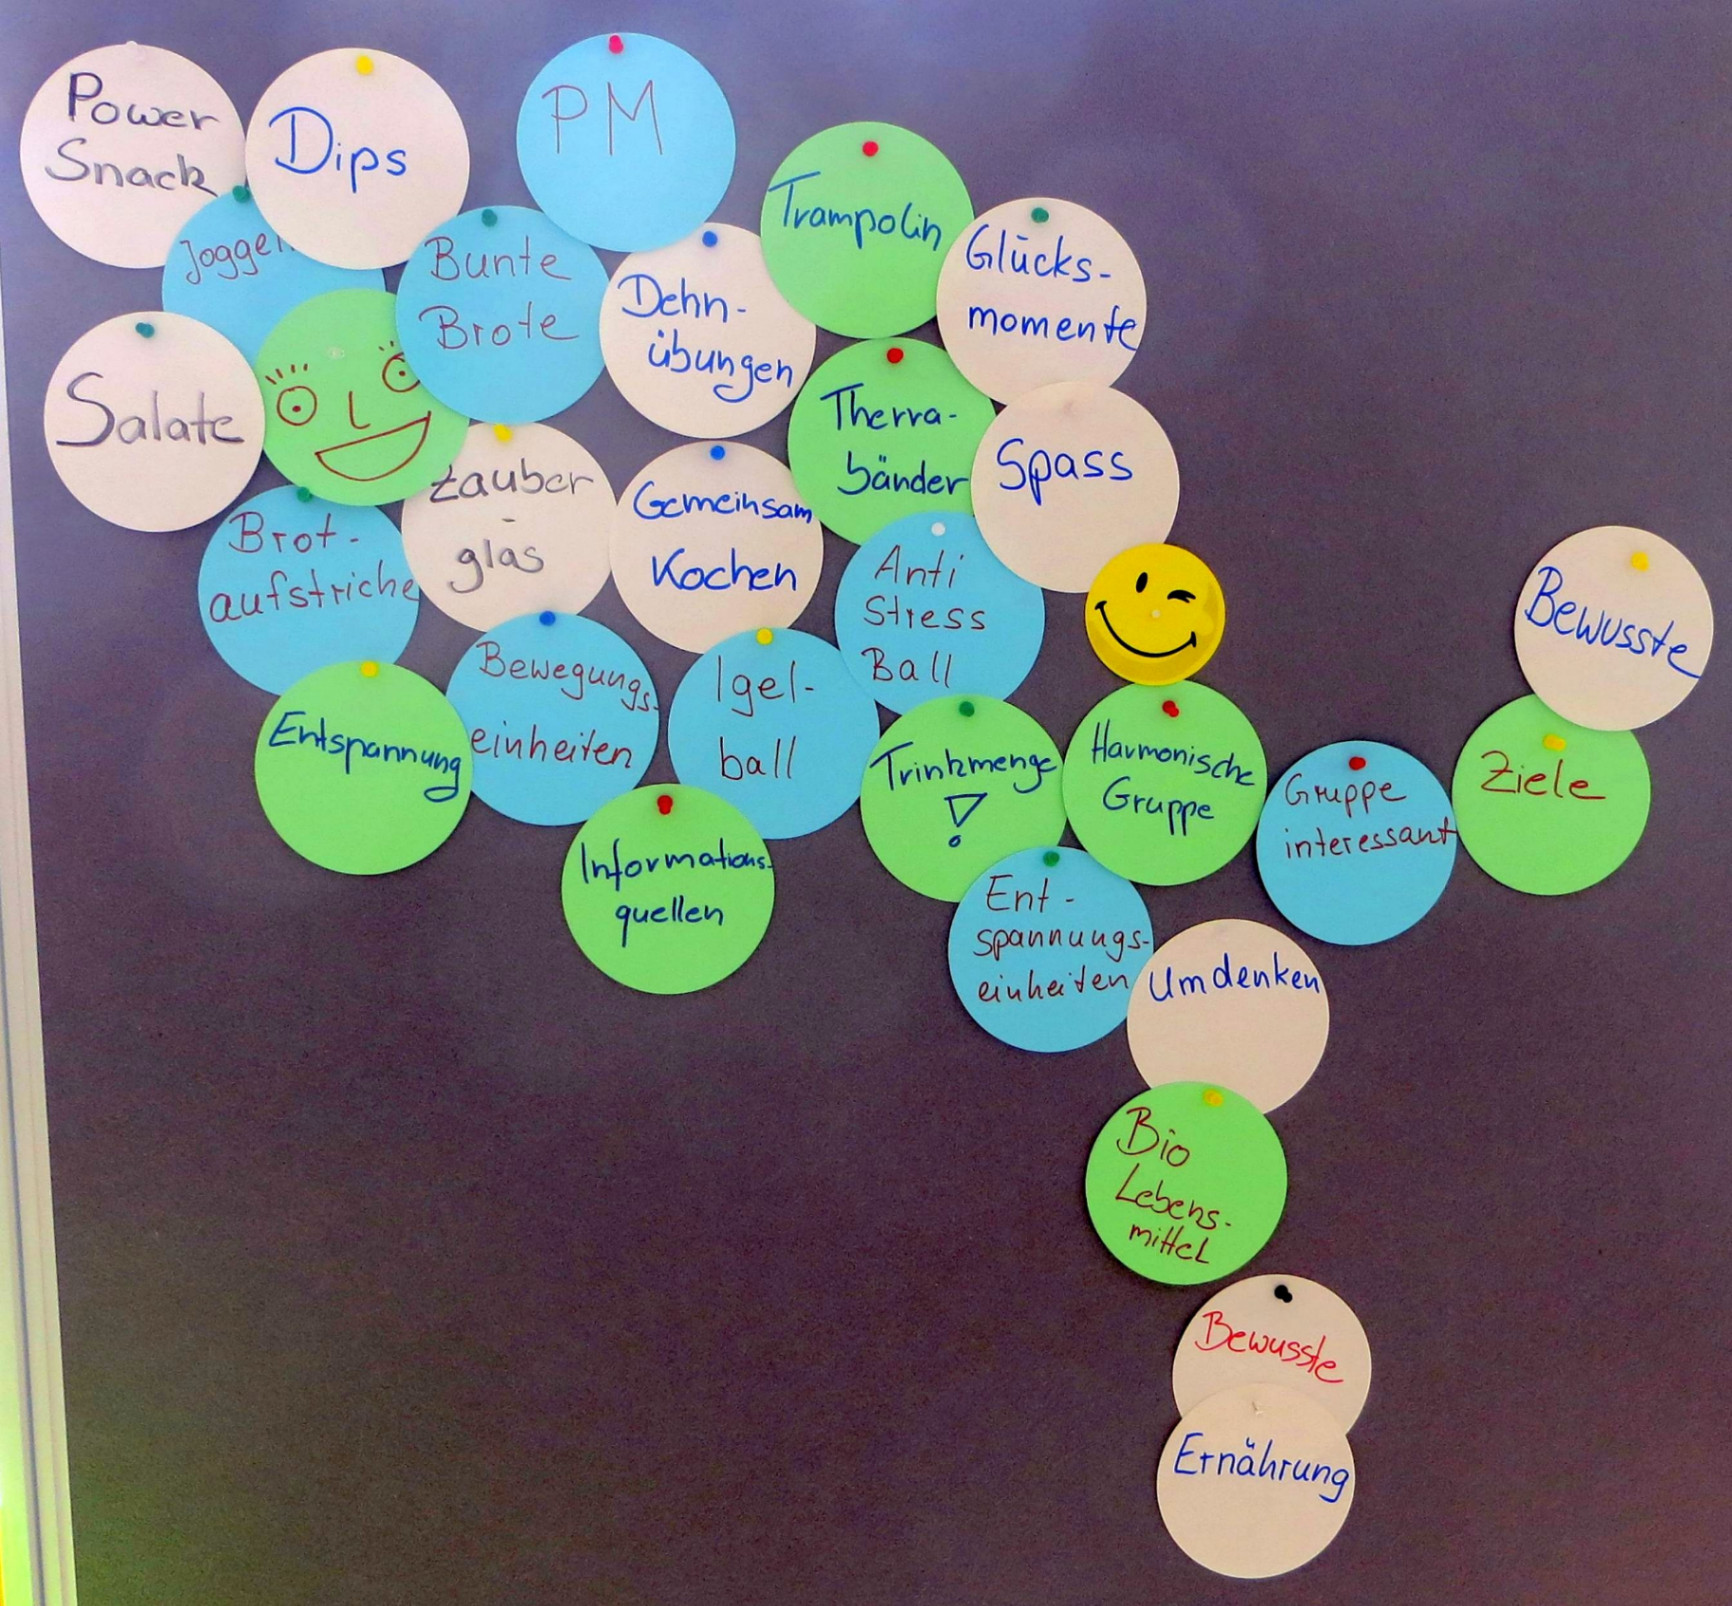 Power
Snack
Dips
PM
Joggen
Bunte
Brote
Dehn-
übungen
Trampolin
Glücks-
momente
Salate
Zauber
-
glas
Gemeinsam
Kochen
Therra-
bänder
Spass
Brot-
aufstriche
Bewegungs-
einheiten
Igel-
ball
Anti
Stress
Ball
Entspannung
Informations-
quellen
Trinkmenge
!
Harmonische
Gruppe
Gruppe
interessant
Ziele
Bewusste
Ent-
spannungs-
einheiten
Umdenken
Bio
Lebens-
mittel
Bewusste
Ernährung